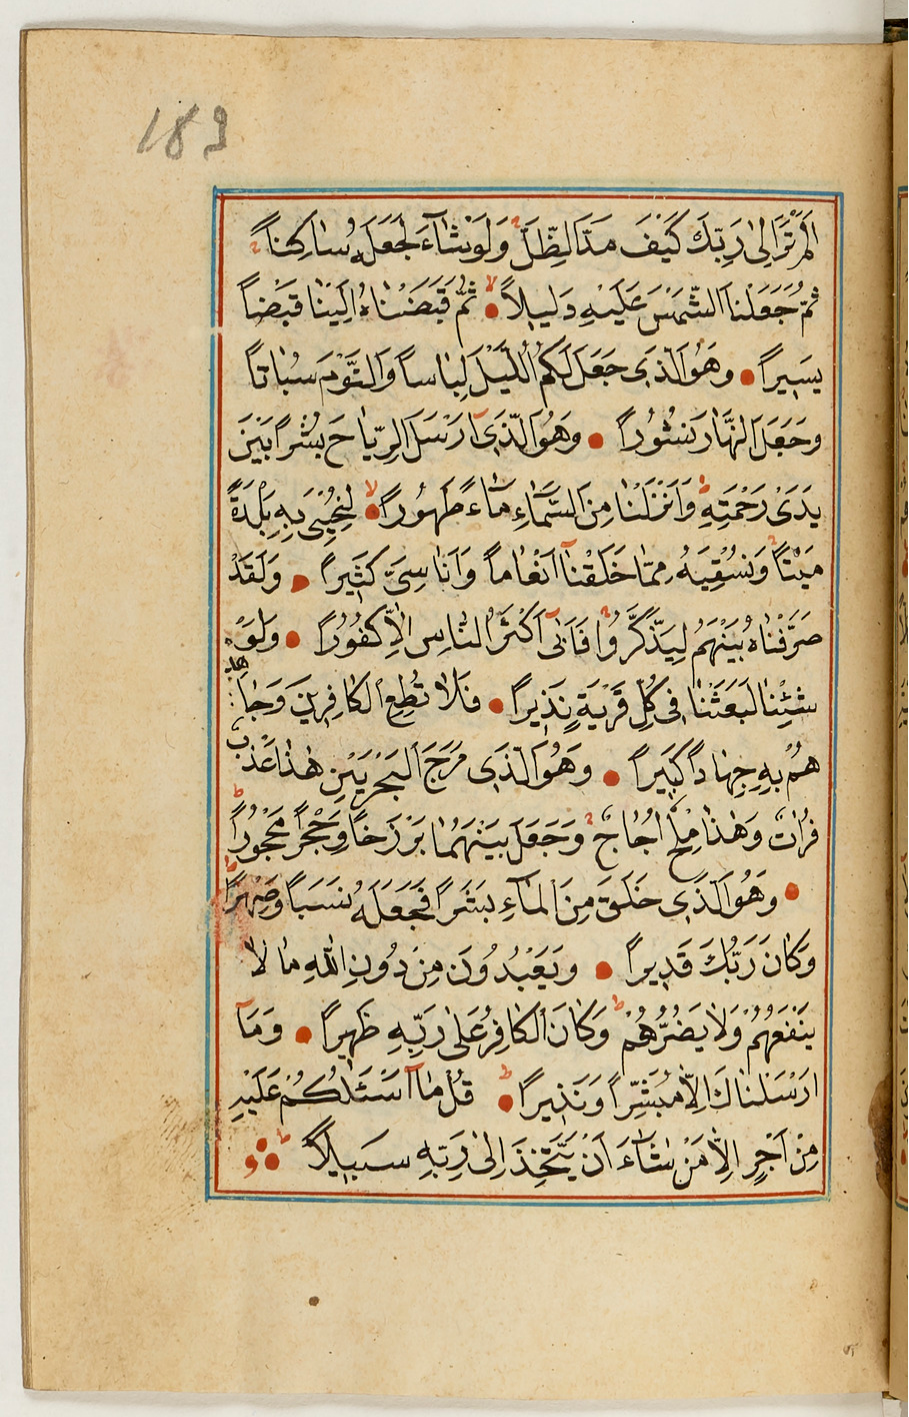 183
اَلَمْ تَرَ اِلٰى رَبِّكَ كَيْفَ مَدَّ الظِّلَّ وَلَوْ شَآءَ لَجَعَلَهُ سَاكِنًا
ثُمَّ جَعَلْنَا الشَّمْسَ عَلَيْهِ دَلِيلاً ثُمَّ قَبَضْنَاهُ اِلَيْنَا قَبْضاً
يَسِيراً وَهُوَ الَّذِى جَعَلَ لَكُمُ اللَّيْلَ لِبَاساً وَالنَّوْمَ سُبَاتاً
وَجَعَلَ النَّهَارَ نُشُوراً وَهُوَ الَّذِىٓ اَرْسَلَ الرِّيَاحَ بُشْراً بَيْنَ
يَدَىْ رَحْمَتِهِ وَاَنْزَلْنَا مِنَ السَّمَآءِ مَآءً طَهُوراً لِنُحْيِىَ بِهِ بَلْدَةً
مَيْتاً وَنُسْقِيَهُ مِمَّا خَلَقْنَآ اَنْعَاماً وَاَنَاسِىَّ كَثِيراً وَلَقَدْ
صَرَّفْنَاهُ بَيْنَهُمْ لِيَذَّكَّرُوا فَاَبٰىٓ اَكْثَرُ النَّاسِ اِلاَّ كُفُوراً وَلَوْ
شِئْنَا لَبَعَثْنَا فِى كُلِّ قَرْيَةٍ نَذِيراً فَلَا تُطِعِ الْكَافِرِينَ وَجَاهِدْ
هُمْ بِهِ جِهَاداً كَبِيراً وَهُوَ الَّذِى مَرَجَ الْبَحْرَيْنِ هٰذَا عَذْبٌ
فُرَاتٌ وَهٰذَا مِلْحٌ اُجَاجٌ وَجَعَلَ بَيْنَهُمَا بَرْزَخاً وَحِجْراً مَحْجُوراً
وَهُوَ الَّذِى خَلَقَ مِنَ الْمَآءِ بَشَراً فَجَعَلَهُ نَسَباً وَصِهْراً
وَكَانَ رَبُّكَ قَدِيراً وَيَعْبُدُونَ مِنْ دُونِ اللهِ مَا لَا
يَنْفَعُهُمْ وَلَا يَضُرُّهُمْ وَكَانَ الْكَافِرُ عَلٰى رَبِّهِ ظَهِيراً وَمَآ
اَرْسَلْنَاكَ اِلاَّ مُبَشِّراً وَنَذِيراً قُلْ مَآ اَسْئَلُكُمْ عَلَيْهِ
مِنْ اَجْرٍ اِلاَّ مَنْ شَآءَ اَنْ يَتَّخِذَ اِلٰى رَبِّهِ سَبِيلاً